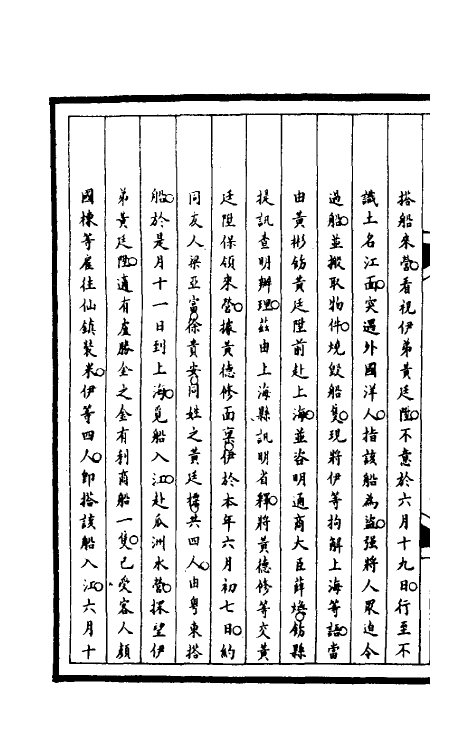 搭船来營看視伊弟黃廷陞不意於六月十九日行至不
識土名江面突遇外國洋人指該船為盜强將人眾迫令
過船並搬取物件燒毀船隻現將伊等拘解上海等語當
由黃彬飭黃廷陞前赴上海並咨明通商大臣薛煥飭縣
提訊查明辦理茲由上海縣訊明省釋將黃德修等交黃
廷陞保領来營據黃德修面稟伊於本年六月初七日約
同友人梁亞富徐貴安同姓之黃廷樑共四人由粵東搭
船於是月十一日到上海覓船入江赴瓜洲水營探望伊
弟黃廷陞適有盧勝金之金有利商船一隻已受客人顧
國棟等雇往仙鎮裝米伊等四人即搭該船入江六月十